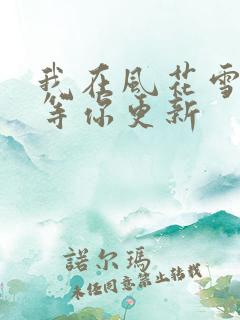 我在风花雪
等你更新
諾尔瑪
未任同意禁止转载